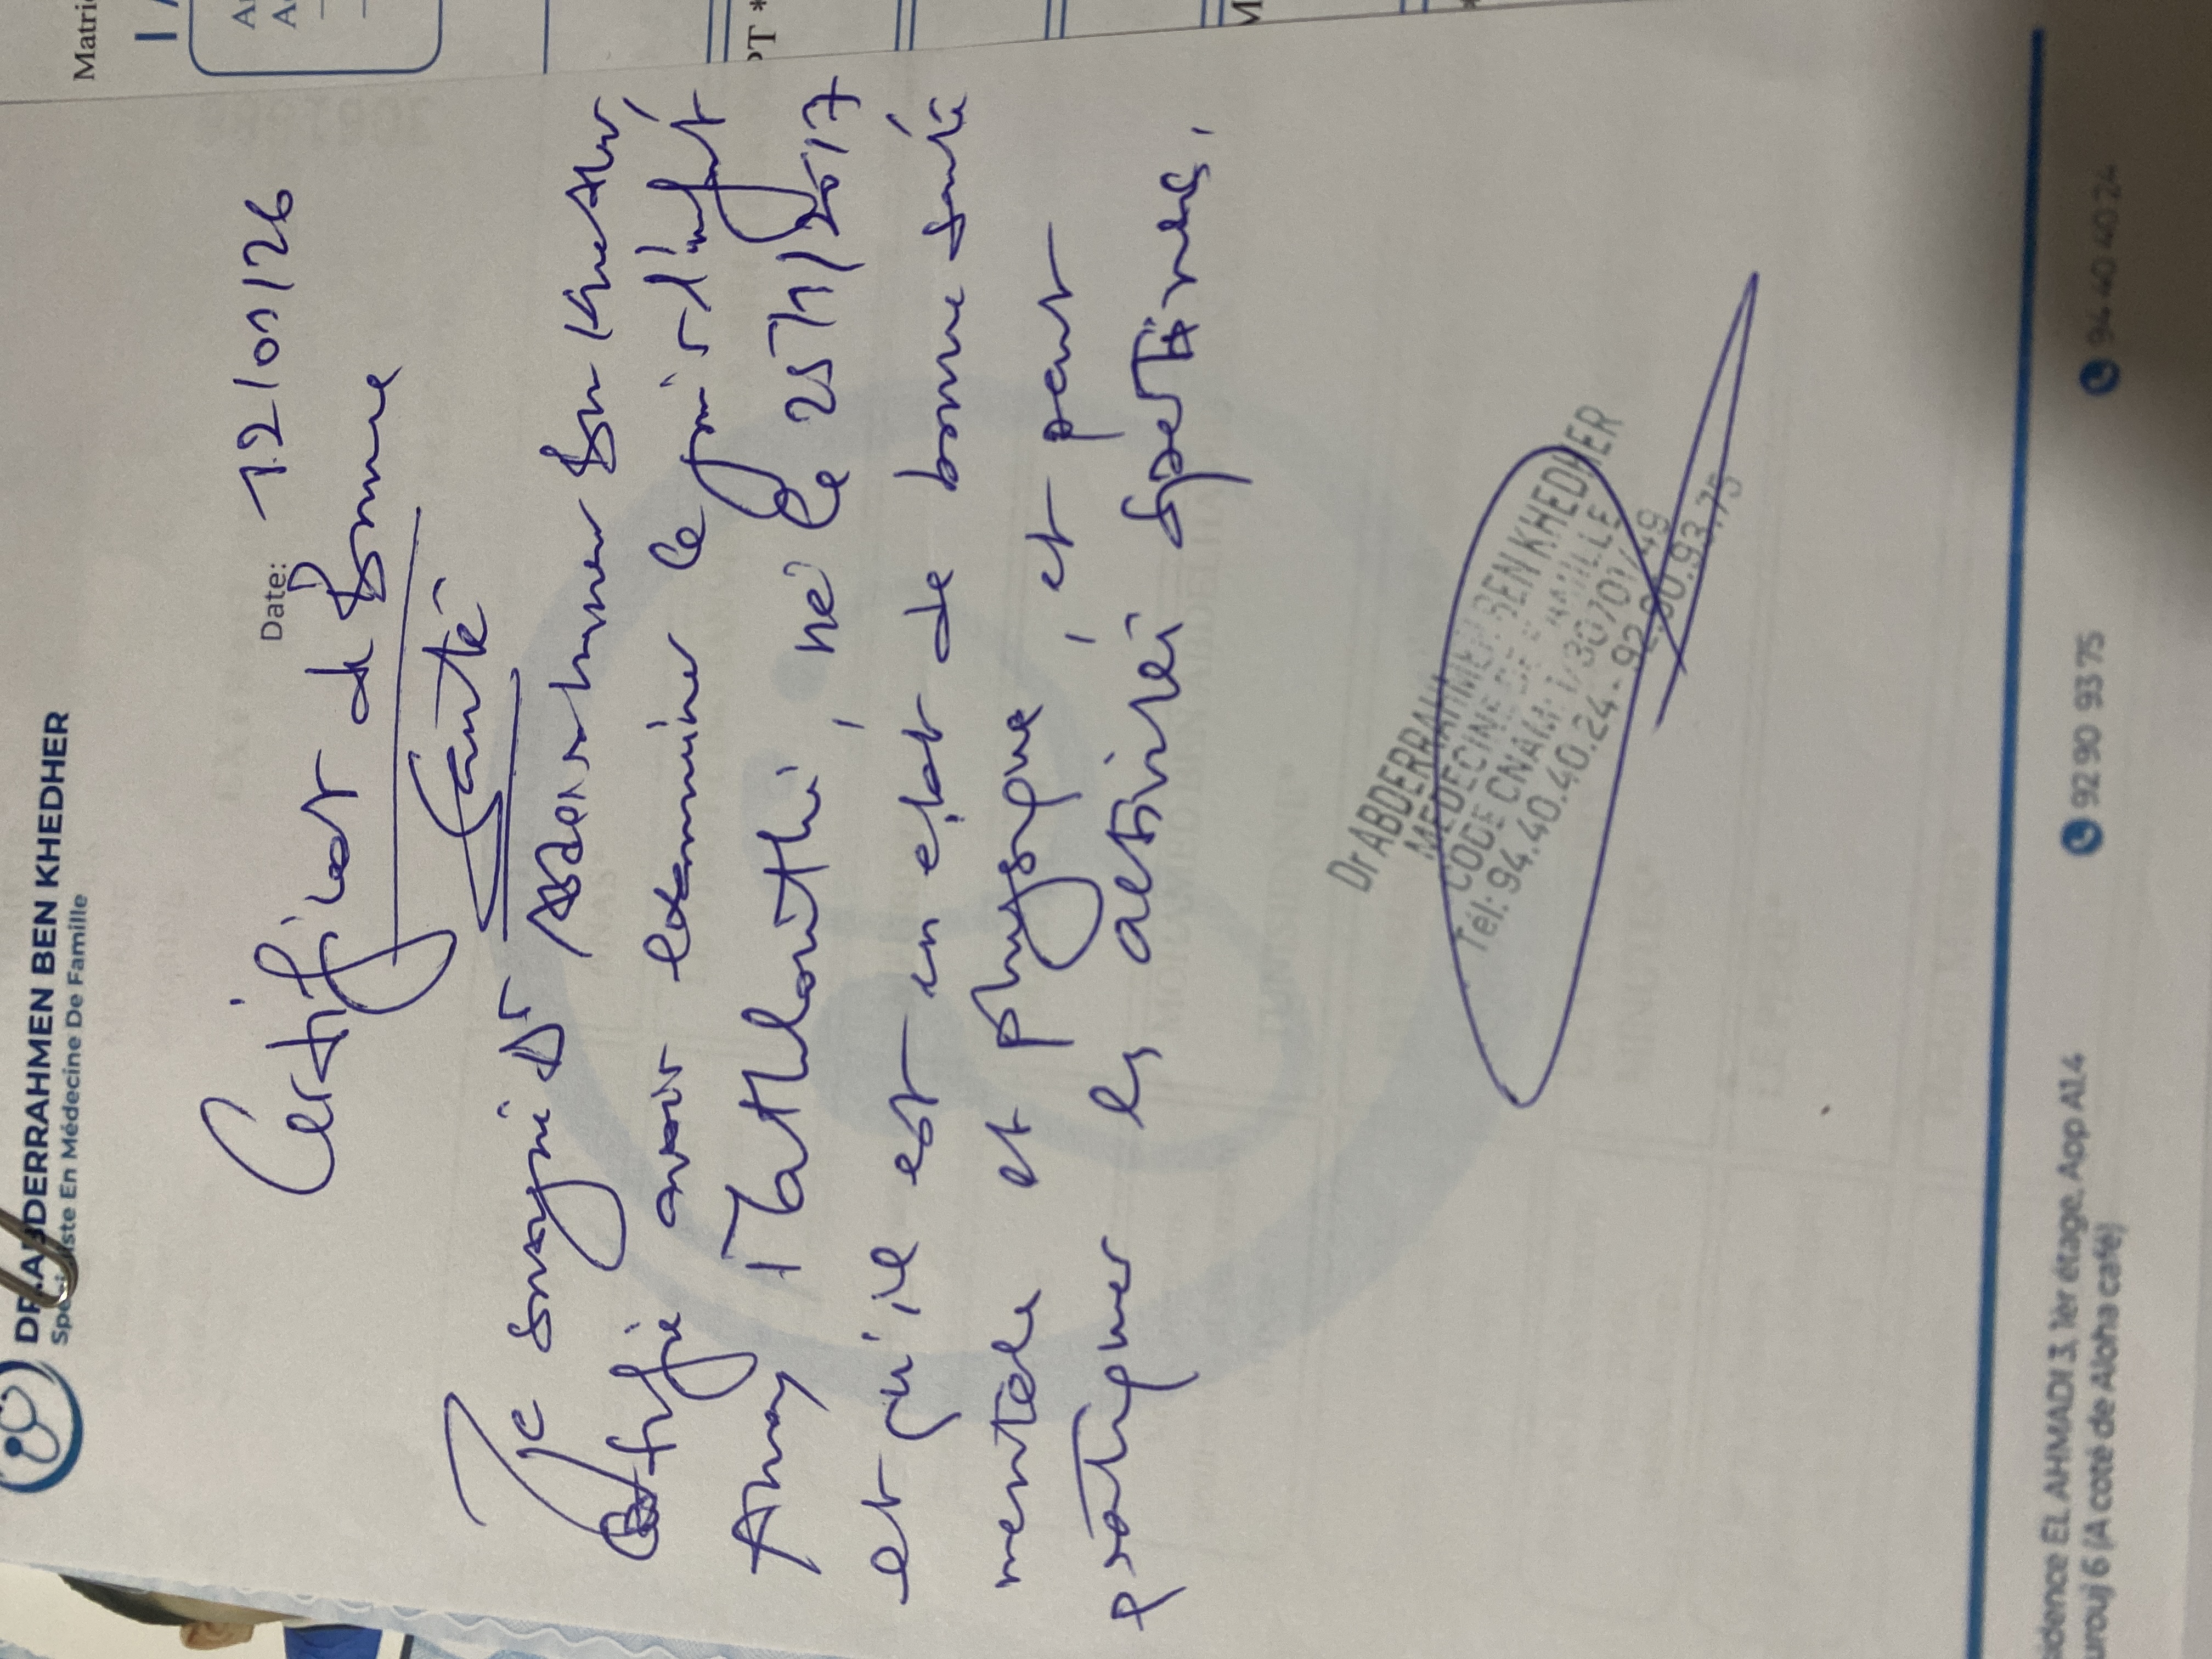 DR ABDERRAHMEN BEN KHEDHER
Spécialiste En Médecine De Famille
Matri
PT *
Date: 12/01/26
Certificat de bonne
Santé
Je soussigné Dr Abderrahmen Ben Khedher,
certifie avoir examiner ce jour l'enfant
Mathlouthi, né le 25/11/2017
et qu'il est en état de bonne santé
mentale et physique, et peut
pratiquer les activités sportives.
Dr ABDERRAHMEN BEN KHEDHER
MEDECINE DE FAMILLE
CODE CNAM: 1/30701/49
Tél: 94.40.40.24 - 92.90.93.75
idence EL AHMADI 3, 1èr étage, App A1.4
urouj 6 (A coté de Aloha café)
92 90 93 75
94 40 40 24